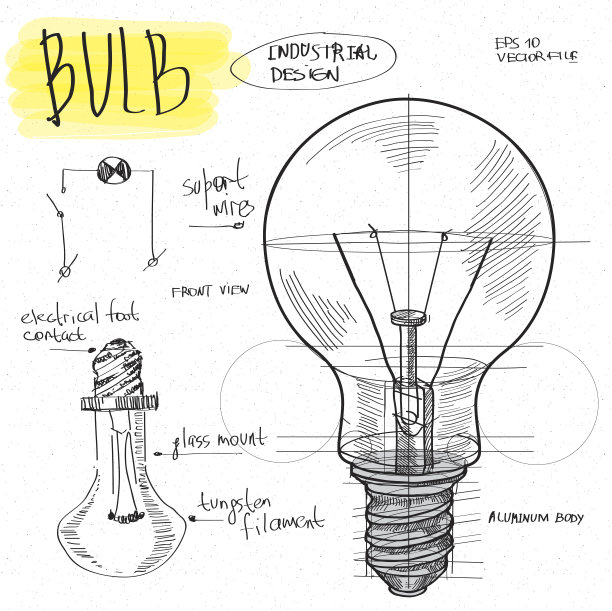 BULB
INDUSTRIAL
DESIGN
EPS 10
VECTOR FILE
suport
wires
FRONT VIEW
electrical foot
contact
glass mount
tungsten
filament
ALUMINUM BODY